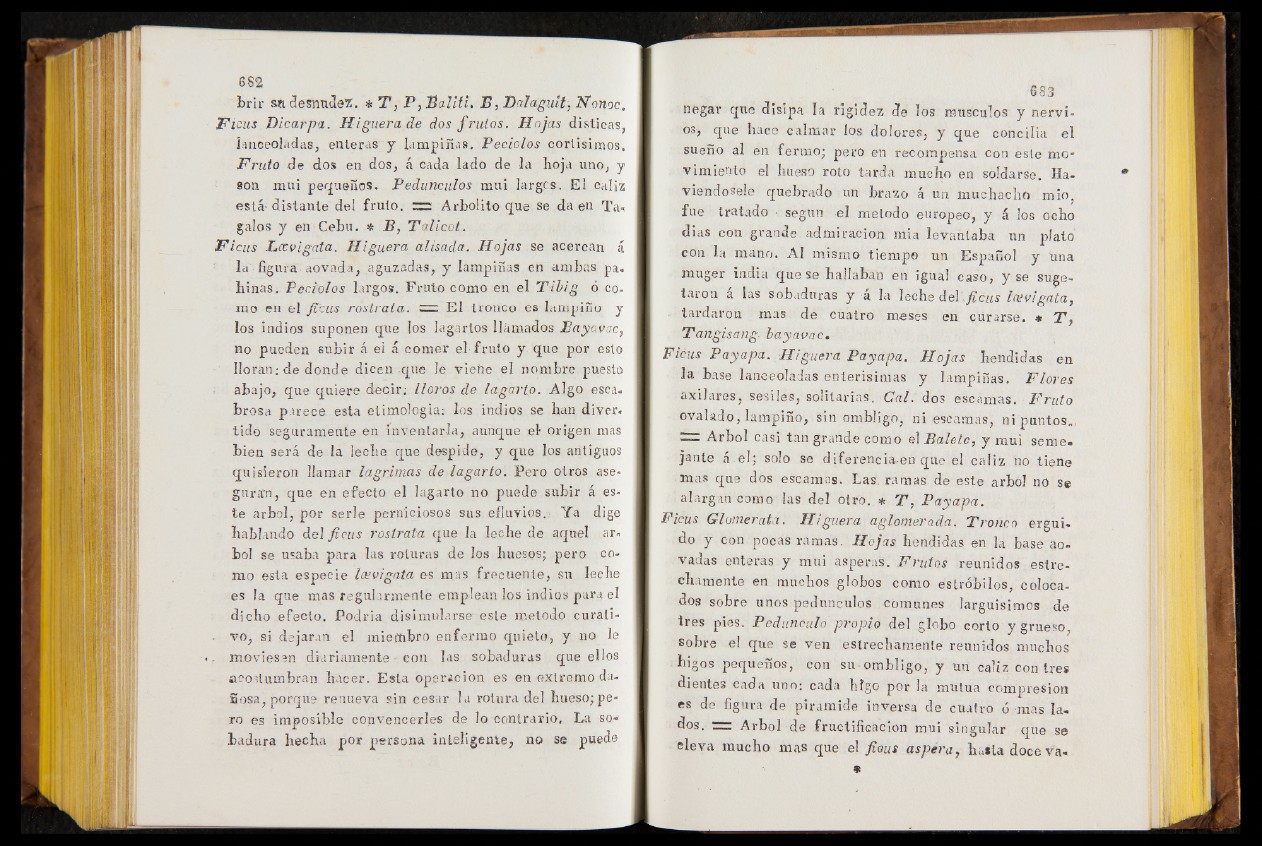 682
brir su desnudez. * T, P, Baliti. B, Dalaguit, Nonoc.
Ficus Dicarpa. Higuera de dos frutos. Hojas disticas,
lanceoladas, enteras y lampiñas. Peciolos cortisimos.
Fruto de dos en dos, á cada lado de la hoja uno, y
son mui pequeños. Pedunculos mui largos. El caliz
está distante del fruto. = Arbolito que se da en Ta-
galos y en Cebu. * B, Talicot.
Ficus Lævigata. Higuera alisada. Hojas se acercan á
la figura aovada, aguzadas, y lampiñas en ambas pa-
hinas. Peciolos largos. Fruto como en el Tibig ó co-
mo en el ficus rostrata. = El tronco es lampiño y
los indios suponen que los lagartos llamados Bayavac,
no pueden subir á el á comer el fruto y que por esto
lloran: de donde dicen que le viene el nombre puesto
abajo, que quiere decir: lloros de lagarto. Algo esca-
brosa parece esta etimologia: los indios se han diver-
tido seguramente en inventarla, aunque el origen mas
bien será de la leche que despide, y que los antiguos
quisieron llamar lagrimas de lagarto. Pero otros ase-
guran, que en efecto el lagarto no puede subir á es-
te arbol, por serle perniciosos sus efluvios. Ya dige
hablando del ficus rostrata que la leche de aquel ar-
bol se usaba para las roturas de los huesos; pero co-
mo esta especie lævigata es mas frecuente, su leche
es la que mas regularmente emplean los indios para el
dicho efecto. Podria disimularse este metodo curati-
vo, si dejaran el miembro enfermo quieto, y no le
moviesen diariamente con las sobaduras que ellos
acostumbran hacer. Esta operacion es en extremo da-
ñosa, porque renueva sin cesar la rotura del hueso; pe-
ro es imposible convencerles de lo contrario. La so-
badura hecha por persona inteligente, no se puede
683
negar que disipa la rigidez de los musculos y nervi-
os, que hace calmar los dolores, y que concilia el
sueño al en fermo; pero en recompensa con este mo-
vimiento el hueso roto tarda mucho en soldarse. Ha-
viendosele quebrado un brazo á un muchacho mio,
fue tratado segun el metodo europeo, y á los ocho
dias con grande admiracion mia levantaba un plato
con la mano. Al mismo tiempo un Español y una
muger india que se hallaban en igual caso, y se suge-
taron á las sobaduras y á la leche del ficus lævigata,
tardaron mas de cuatro meses en curarse. * T,
Tangisang bayavac.
Ficus Payapa. Higuera Payapa. Hojas hendidas en
la base lanceoladas enterisimas y lampiñas. Flores
axilares, sesiles, solitarias. Cal. dos escamas. Fruto
ovalado, lampiño, sin ombligo, ni escamas, ni puntos.
= Arbol casi tan grande como el Balete, y mui seme-
jante á el; solo se diferencia en que el caliz no tiene
mas que dos escamas. Las ramas de este arbol no se
alargan como las del otro. * T, Payapa.
Ficus Glomerata. Higuera aglomerada. Tronco ergui-
do y con pocas ramas. Hojas hendidas en la base ao-
vadas enteras y mui asperas. Frutos reunidos estre-
chamente en muchos globos como estróbilos, coloca-
dos sobre unos pedunculos comunes larguisimos de
tres pies. Pedunculo propio del globo corto y grueso,
sobre el que se ven estrechamente reunidos muchos
higos pequeños, con su ombligo, y un caliz con tres
dientes cada uno: cada higo por la mutua compresion
es de figura de piramide inversa de cuatro ó mas la-
dos. = Arbol de fructificacion mui singular que se
eleva mucho mas que el ficus aspera, hasta doce va-
*